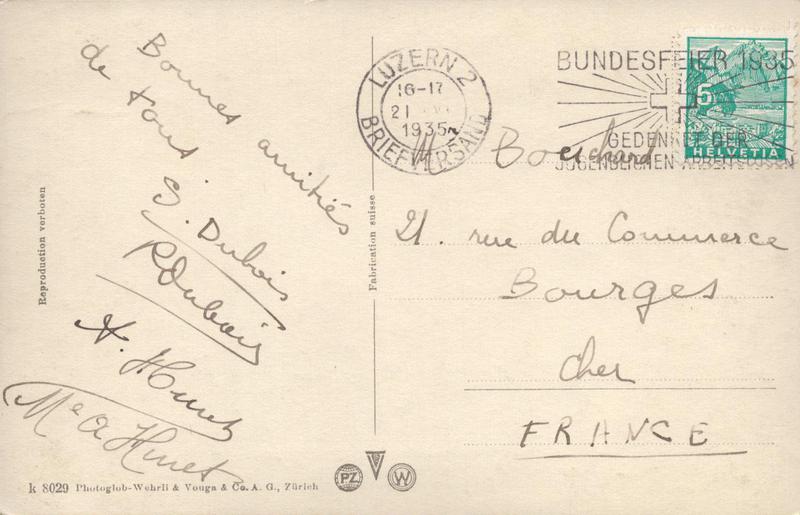 Bonnes amitiés
de tous
S. Dubois
R Dubois
A. Huret
Me A Huret
Reproduction verboten
k 8029 Photoglob-Wehrli & Vouga & Co. A. G., Zürich
Fabrication suisse
PZ
W
LUZERN 2
16-17
21
1935
BRIEFVERSAND
BUNDESFEIER 1935
GEDENKET DER
JUGENDLICHEN ARBEITSLOSEN
5
HELVETIA
M Bouchard
21. rue du Commerce
Bourges
Cher
FRANCE